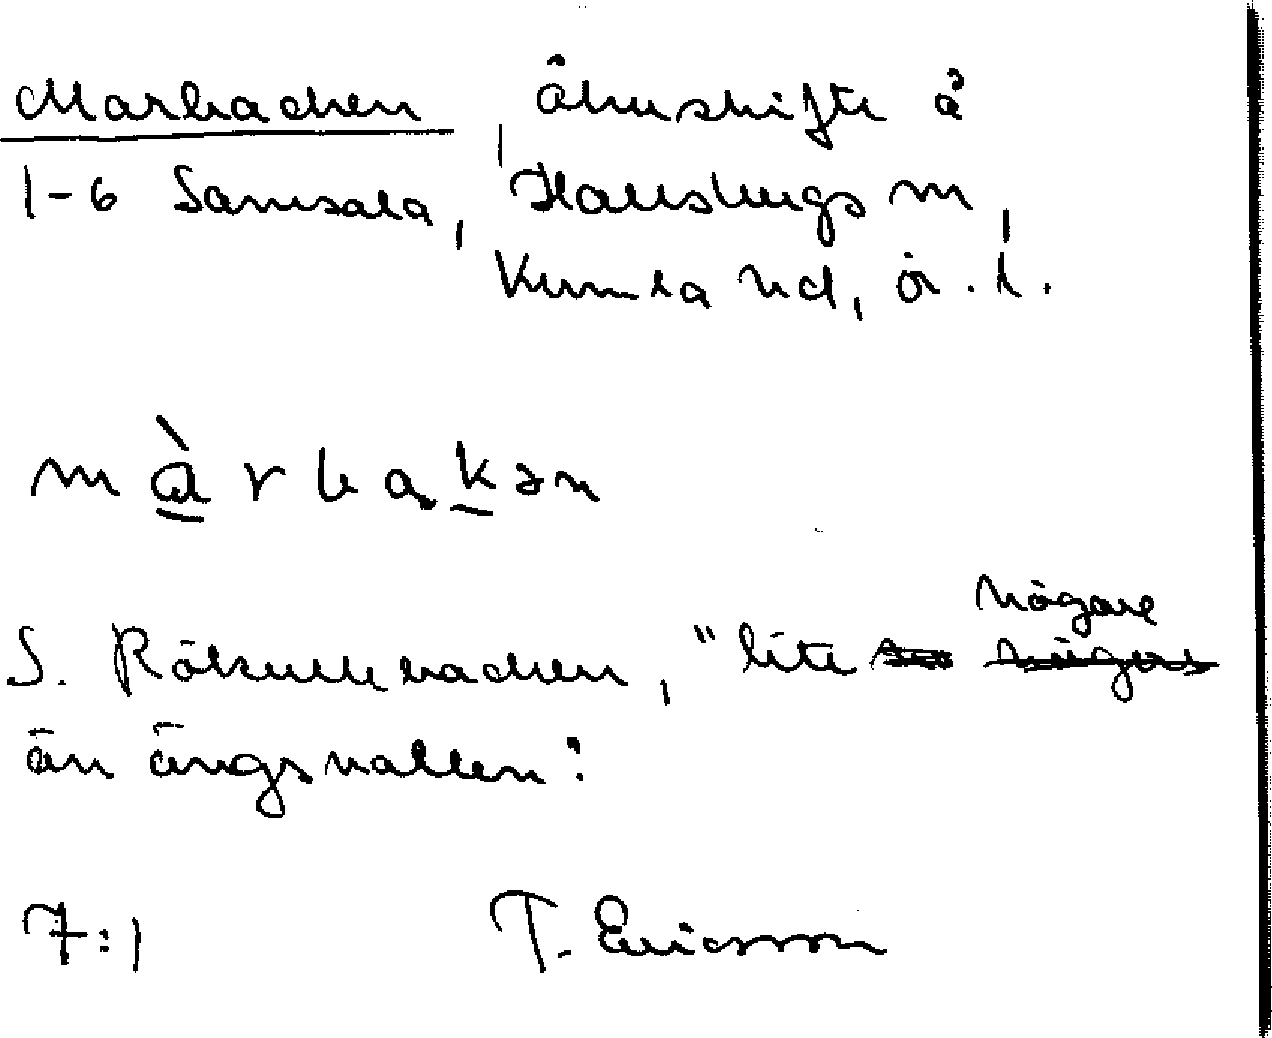 Marbacken, åkerskifte å
1-6 Samsala, Hallsbergs sn,
Kumla hd, ör. l.
màrbakən
S. Rökullebacken, "lite högare
än ängsvallen:
7:1 T. Ericsson